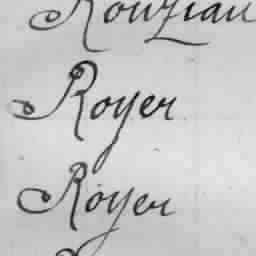 Rouziau
Royer
Royer